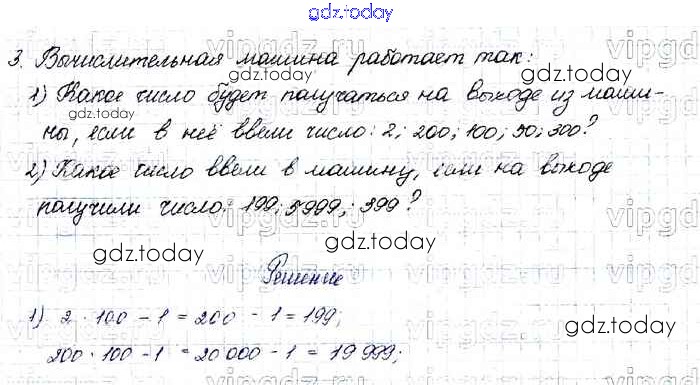 gdz.today
3. Вычислительная машина работает так:
1) Какое число будет получаться на выходе из маши-
ны, если в неё ввели число: 2; 200; 100; 50; 300?
2) Какое число ввели в машину, если на выходе
получили число: 199; 5999; 399?
Решение
1) 2 · 100 - 1 = 200 - 1 = 199;
200 · 100 - 1 = 20 000 - 1 = 19 999;